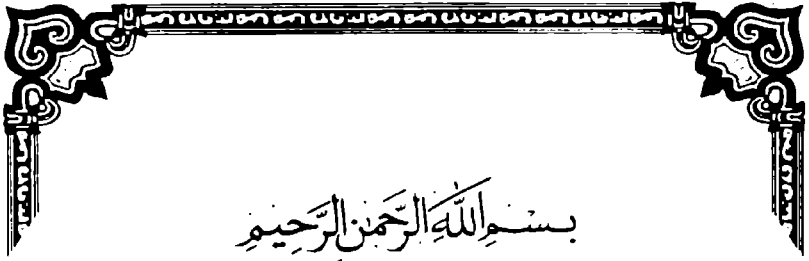 بسم اللهِ الرَّحمٰنِ الرَّحِيمِ